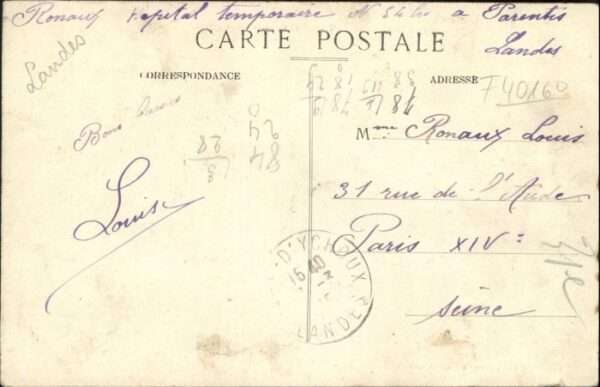 Ronaux Hopital temporaire N 54 bis a Parentis
Landes
CARTE POSTALE
Landes
CORRESPONDANCE
ADRESSE
F40160
Bons baisers
Louise
Mme Ronaux Louis
31 rue de l'Aude
Paris XIV e
Seine
D'YCHOUX
LANDES